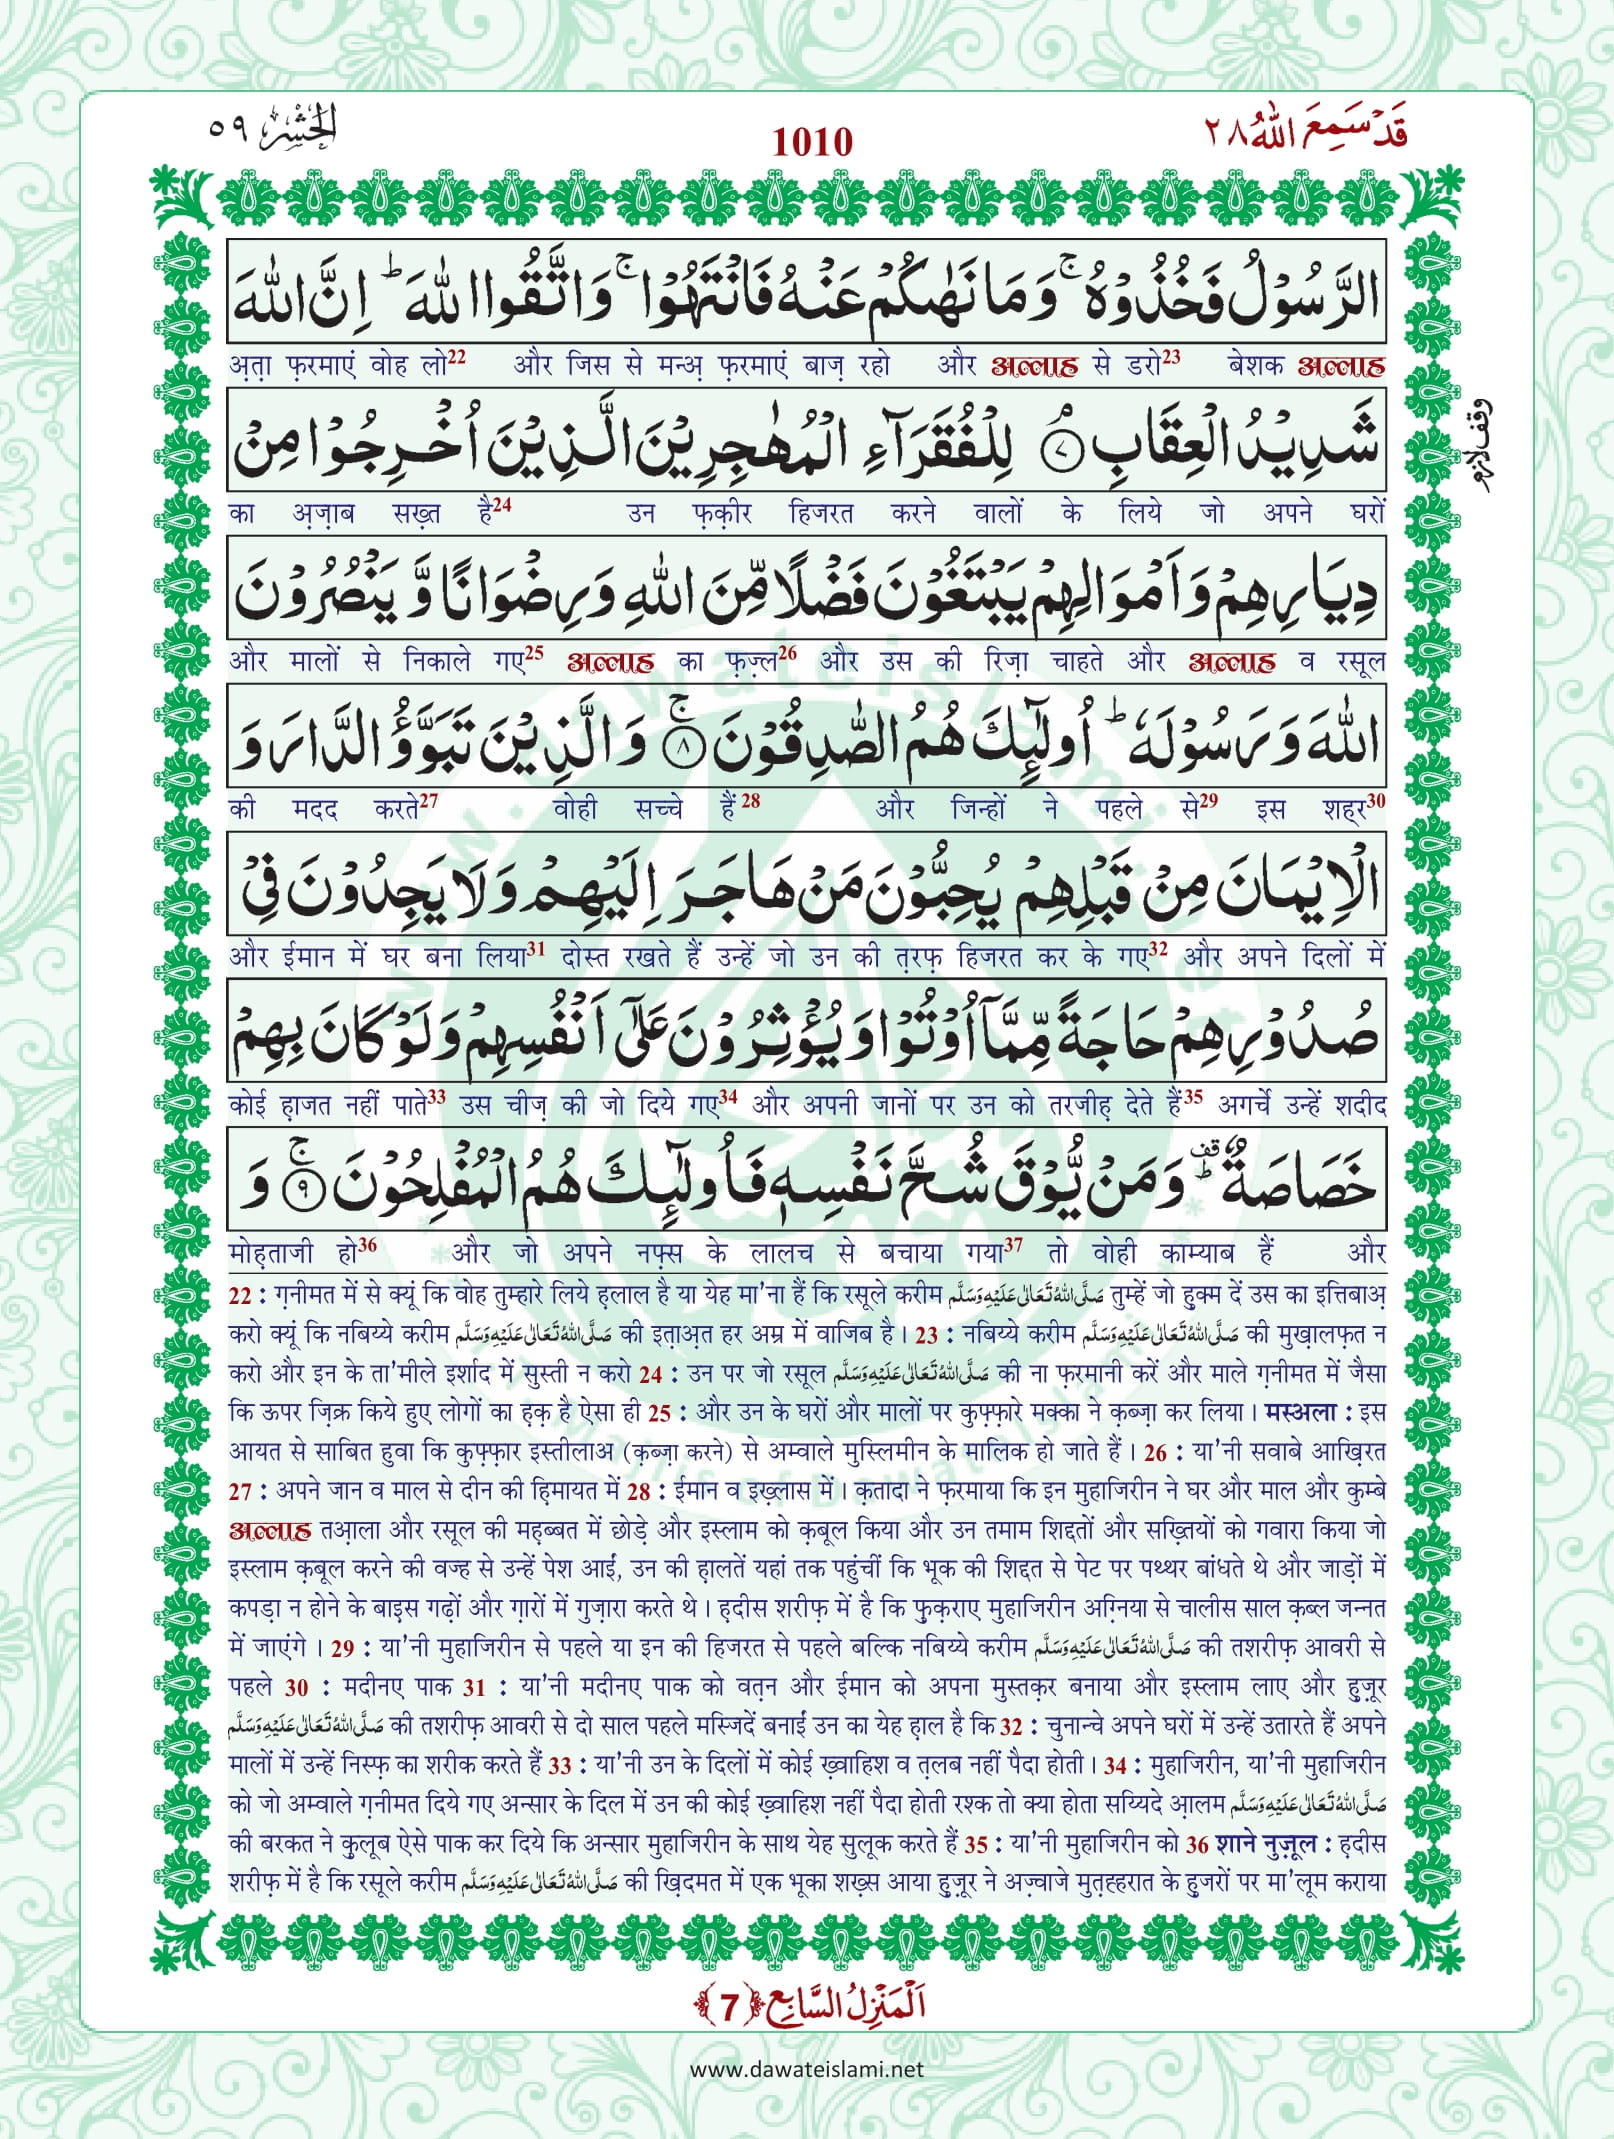 قَدْ سَمِعَ اللّٰهُ ٢٨
1010
الحَشْر ٥٩
الرَّسُوْلُ فَخُذُوْهُ ۚ وَمَا نَهٰىكُمْ عَنْهُ فَانْتَهُوْا ۚ وَاتَّقُوا اللّٰهَ ؕ اِنَّ اللّٰهَ
अ़त़ा फ़रमाएं वोह लो22 और जिस से मन्अ़ फ़रमाएं बाज़ रहो और अल्लाह से डरो23 बेशक अल्लाह
شَدِيْدُ الْعِقَابِ ۘ ﴿٧﴾ لِلْفُقَرَآءِ الْمُهٰجِرِيْنَ الَّذِيْنَ اُخْرِجُوْا مِنْ
وقف لازم
का अ़ज़ाब सख़्त है24 उन फ़क़ीर हिजरत करने वालों के लिये जो अपने घरों
دِيَارِهِمْ وَاَمْوَالِهِمْ يَبْتَغُوْنَ فَضْلًا مِّنَ اللّٰهِ وَرِضْوَانًا وَّ يَنْصُرُوْنَ
और मालों से निकाले गए25 अल्लाह का फ़ज़्ल26 और उस की रिज़ा चाहते और अल्लाह व रसूल
اللّٰهَ وَرَسُوْلَهٗ ؕ اُولٰٓئِكَ هُمُ الصّٰدِقُوْنَ ۚ ﴿٨﴾ وَالَّذِيْنَ تَبَوَّؤُ الدَّارَ وَ
की मदद करते27 वोही सच्चे हैं28 और जिन्हों ने पहले से29 इस शहर30
الْاِيْمَانَ مِنْ قَبْلِهِمْ يُحِبُّوْنَ مَنْ هَاجَرَ اِلَيْهِمْ وَلَا يَجِدُوْنَ فِيْ
और ईमान में घर बना लिया31 दोस्त रखते हैं उन्हें जो उन की त़रफ़ हिजरत कर के गए32 और अपने दिलों में
صُدُوْرِهِمْ حَاجَةً مِّمَّاۤ اُوْتُوْا وَيُؤْثِرُوْنَ عَلٰۤى اَنْفُسِهِمْ وَلَوْ كَانَ بِهِمْ
कोई ह़ाजत नहीं पाते33 उस चीज़ की जो दिये गए34 और अपनी जानों पर उन को तरजीह़ देते हैं35 अगर्चे उन्हें शदीद
خَصَاصَةٌ ؕقف وَمَنْ يُّوْقَ شُحَّ نَفْسِهٖ فَاُولٰٓئِكَ هُمُ الْمُفْلِحُوْنَ ۚ ﴿٩﴾ وَ
मोह़ताजी हो36 और जो अपने नफ़्स के लालच से बचाया गया37 तो वोही काम्याब हैं और
22 : ग़नीमत में से क्यूं कि वोह तुम्हारे लिये ह़लाल है या येह मा'ना हैं कि रसूले करीम صَلَّى اللّٰهُ تَعَالٰى عَلَيْهِ وَسَلَّم तुम्हें जो हुक्म दें उस का इत्तिबाअ़
करो क्यूं कि नबिय्ये करीम صَلَّى اللّٰهُ تَعَالٰى عَلَيْهِ وَسَلَّم की इत़ाअ़त हर अम्र में वाजिब है। 23 : नबिय्ये करीम صَلَّى اللّٰهُ تَعَالٰى عَلَيْهِ وَسَلَّم की मुख़ालफ़त न
करो और इन के ता'मीले इर्शाद में सुस्ती न करो 24 : उन पर जो रसूल صَلَّى اللّٰهُ تَعَالٰى عَلَيْهِ وَسَلَّم की ना फ़रमानी करें और माले ग़नीमत में जैसा
कि ऊपर ज़िक्र किये हुए लोगों का ह़क़ है ऐसा ही 25 : और उन के घरों और मालों पर कुफ़्फ़ारे मक्का ने क़ब्ज़ा कर लिया। मस्अला : इस
आयत से साबित हुवा कि कुफ़्फ़ार इस्तीलाअ (क़ब्ज़ा करने) से अम्वाले मुस्लिमीन के मालिक हो जाते हैं। 26 : या'नी सवाबे आख़िरत
27 : अपने जान व माल से दीन की ह़िमायत में 28 : ईमान व इख़्लास में। क़तादा ने फ़रमाया कि इन मुहाजिरीन ने घर और माल और कुम्बे
अल्लाह तआ़ला और रसूल की मह़ब्बत में छोड़े और इस्लाम को क़बूल किया और उन तमाम शिद्दतों और सख़्तियों को गवारा किया जो
इस्लाम क़बूल करने की वज्ह से उन्हें पेश आईं, उन की ह़ालतें यहां तक पहुंचीं कि भूक की शिद्दत से पेट पर पथ्थर बांधते थे और जाड़ों में
कपड़ा न होने के बाइस गढ़ों और ग़ारों में गुज़ारा करते थे। ह़दीस शरीफ़ में है कि फ़ुक़राए मुहाजिरीन अग़्निया से चालीस साल क़ब्ल जन्नत
में जाएंगे। 29 : या'नी मुहाजिरीन से पहले या इन की हिजरत से पहले बल्कि नबिय्ये करीम صَلَّى اللّٰهُ تَعَالٰى عَلَيْهِ وَسَلَّم की तशरीफ़ आवरी से
पहले 30 : मदीनए पाक 31 : या'नी मदीनए पाक को वत़न और ईमान को अपना मुस्तक़र बनाया और इस्लाम लाए और हुज़ूर
صَلَّى اللّٰهُ تَعَالٰى عَلَيْهِ وَسَلَّم की तशरीफ़ आवरी से दो साल पहले मस्जिदें बनाईं उन का येह ह़ाल है कि 32 : चुनान्चे अपने घरों में उन्हें उतारते हैं अपने
मालों में उन्हें निस्फ़ का शरीक करते हैं 33 : या'नी उन के दिलों में कोई ख़्वाहिश व त़लब नहीं पैदा होती। 34 : मुहाजिरीन, या'नी मुहाजिरीन
को जो अम्वाले ग़नीमत दिये गए अन्सार के दिल में उन की कोई ख़्वाहिश नहीं पैदा होती रश्क तो क्या होता सय्यिदे आ़लम صَلَّى اللّٰهُ تَعَالٰى عَلَيْهِ وَسَلَّم
की बरकत ने क़ुलूब ऐसे पाक कर दिये कि अन्सार मुहाजिरीन के साथ येह सुलूक करते हैं 35 : या'नी मुहाजिरीन को 36 शाने नुज़ूल : ह़दीस
शरीफ़ में है कि रसूले करीम صَلَّى اللّٰهُ تَعَالٰى عَلَيْهِ وَسَلَّم की ख़िदमत में एक भूका शख़्स आया हुज़ूर ने अज़्वाजे मुत़ह्हरात के हुजरों पर मा'लूम कराया
اَلْمَنْزِلُ السَّابِع ﴿7﴾
www.dawateislami.net